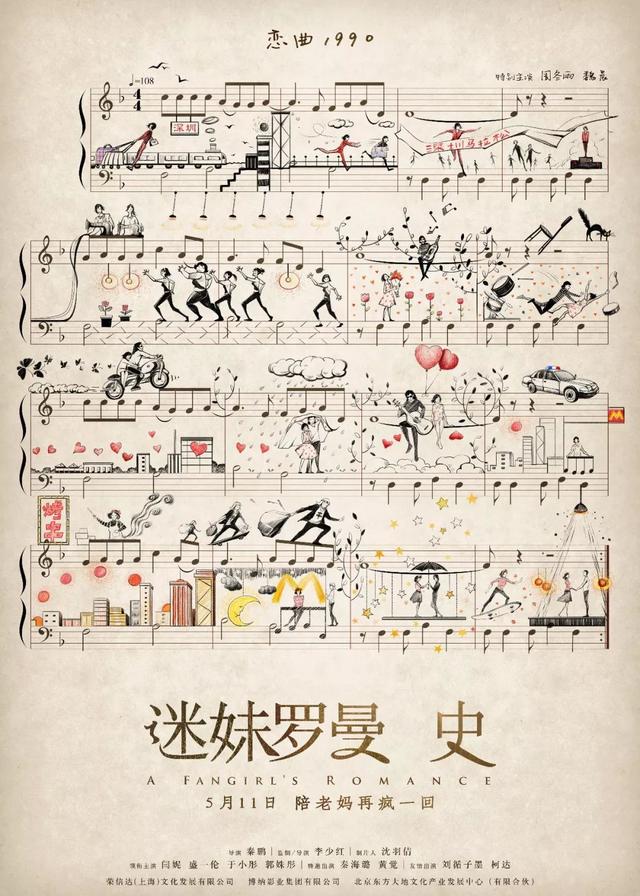 恋曲1990
特别主演 周冬雨 魏晨
♩=108
4
4
深圳
深圳马拉松
M
烤串
M
迷妹罗曼 史
A FANGIRL'S ROMANCE
5月11日 陪老妈再疯一回
导演 秦鹏 | 监制/导演 李少红 | 制片人 沈羽倩
领衔主演 闫妮 盛一伦 于小彤 郭姝彤 | 特邀出演 秦海璐 黄觉 | 友情出演 刘循子墨 柯达
荣信达(上海)文化发展有限公司 博纳影业集团有限公司 北京东方大地文化产业发展中心(有限合伙)